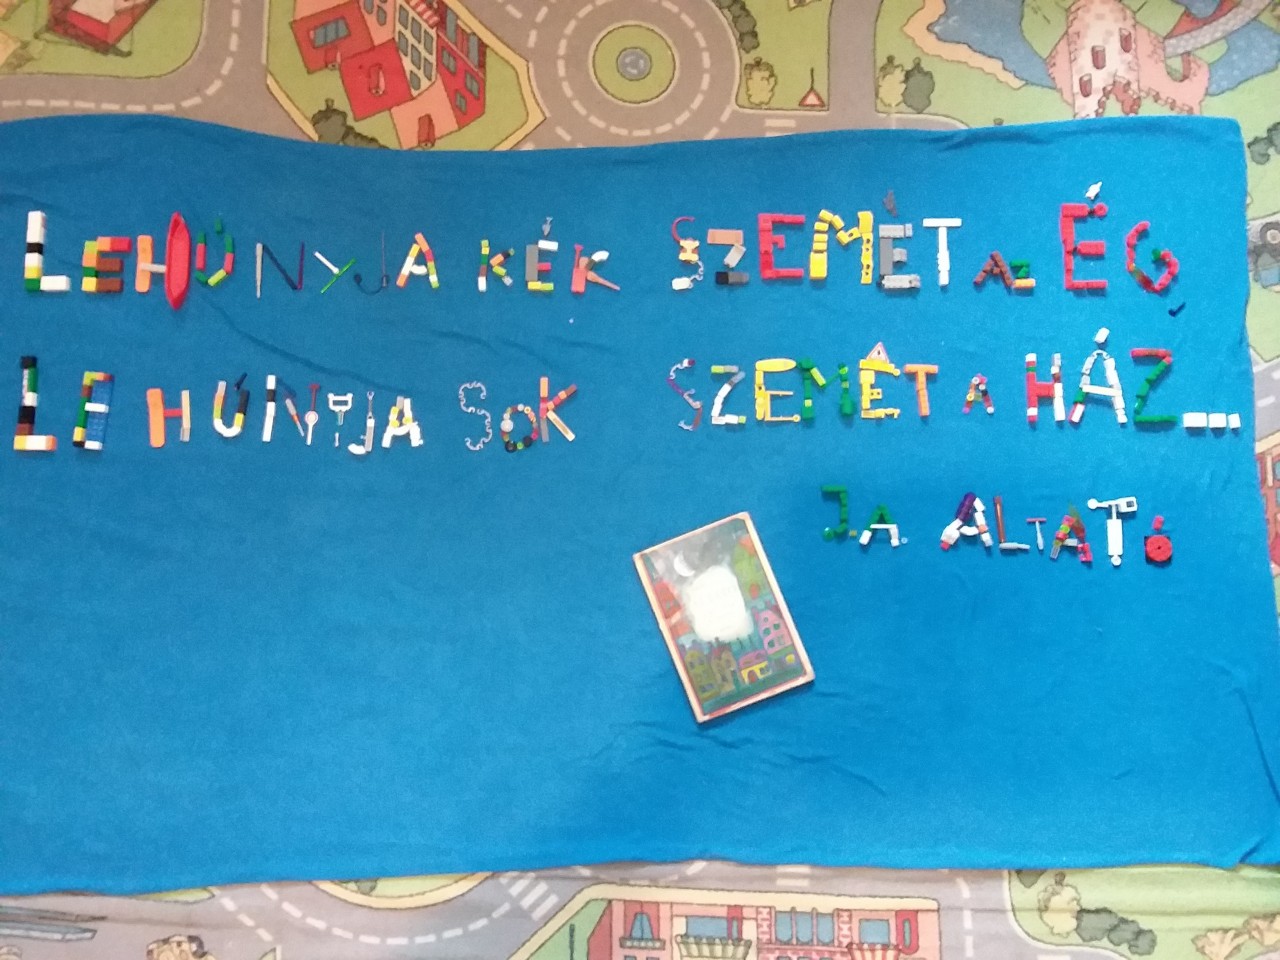 LEHÚNYJA KÉK SZEMÉT AZ ÉG
LEHÚNYJA SOK SZEMÉT A HÁZ...
J.A. ALTATÓ